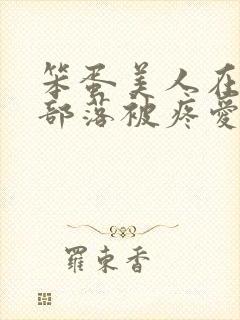 笨蛋美人在
部落被疼愛
羅束香